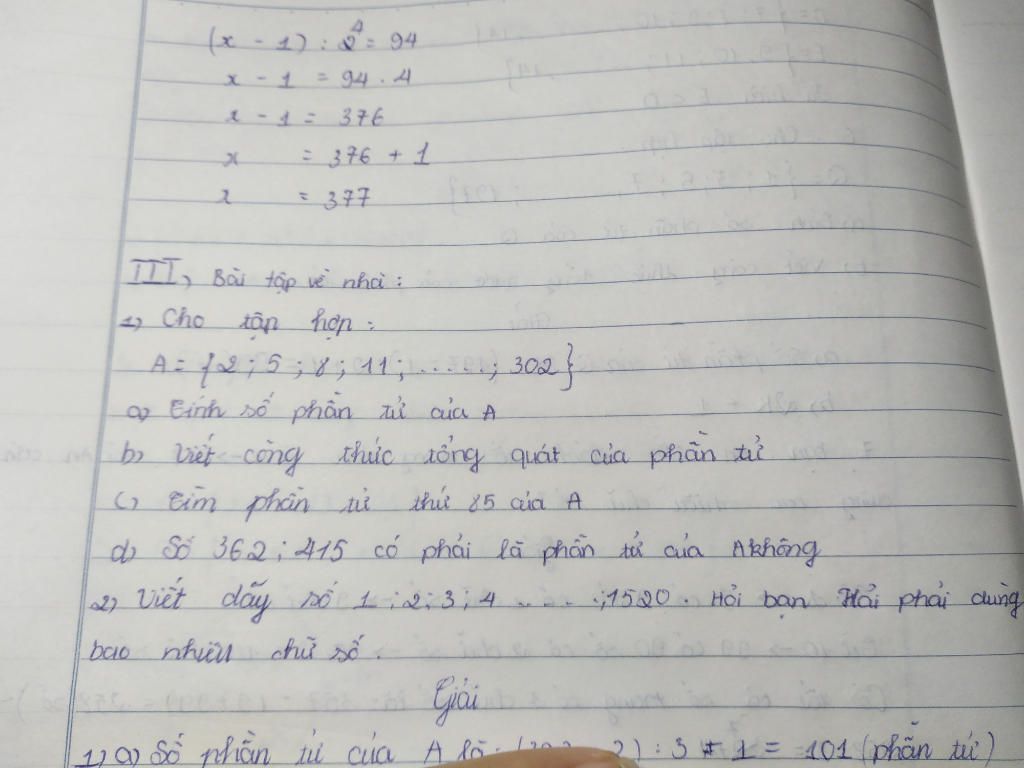 (x - 1) : 2 = 94
x - 1 = 94 . 4
x - 1 = 376
x = 376 + 1
x = 377
III, Bài tập về nhà :
1, Cho tập hợp :
A = {2 ; 5 ; 8 ; 11 ; ...... ; 302}
a, Tính số phần tử của A
b, Viết công thức tổng quát của phần tử
c, Tìm phần tử thứ 85 của A
d, Số 362 ; 415 có phải là phần tử của A không
2, Viết dãy số 1 ; 2 ; 3 ; 4 ...... ; 1520. Hỏi bạn Hải phải dùng
bao nhiêu chữ số.
Giải
1, a, Số phần tử của A là : (302 - 2) : 3 + 1 = 101 (phần tử)